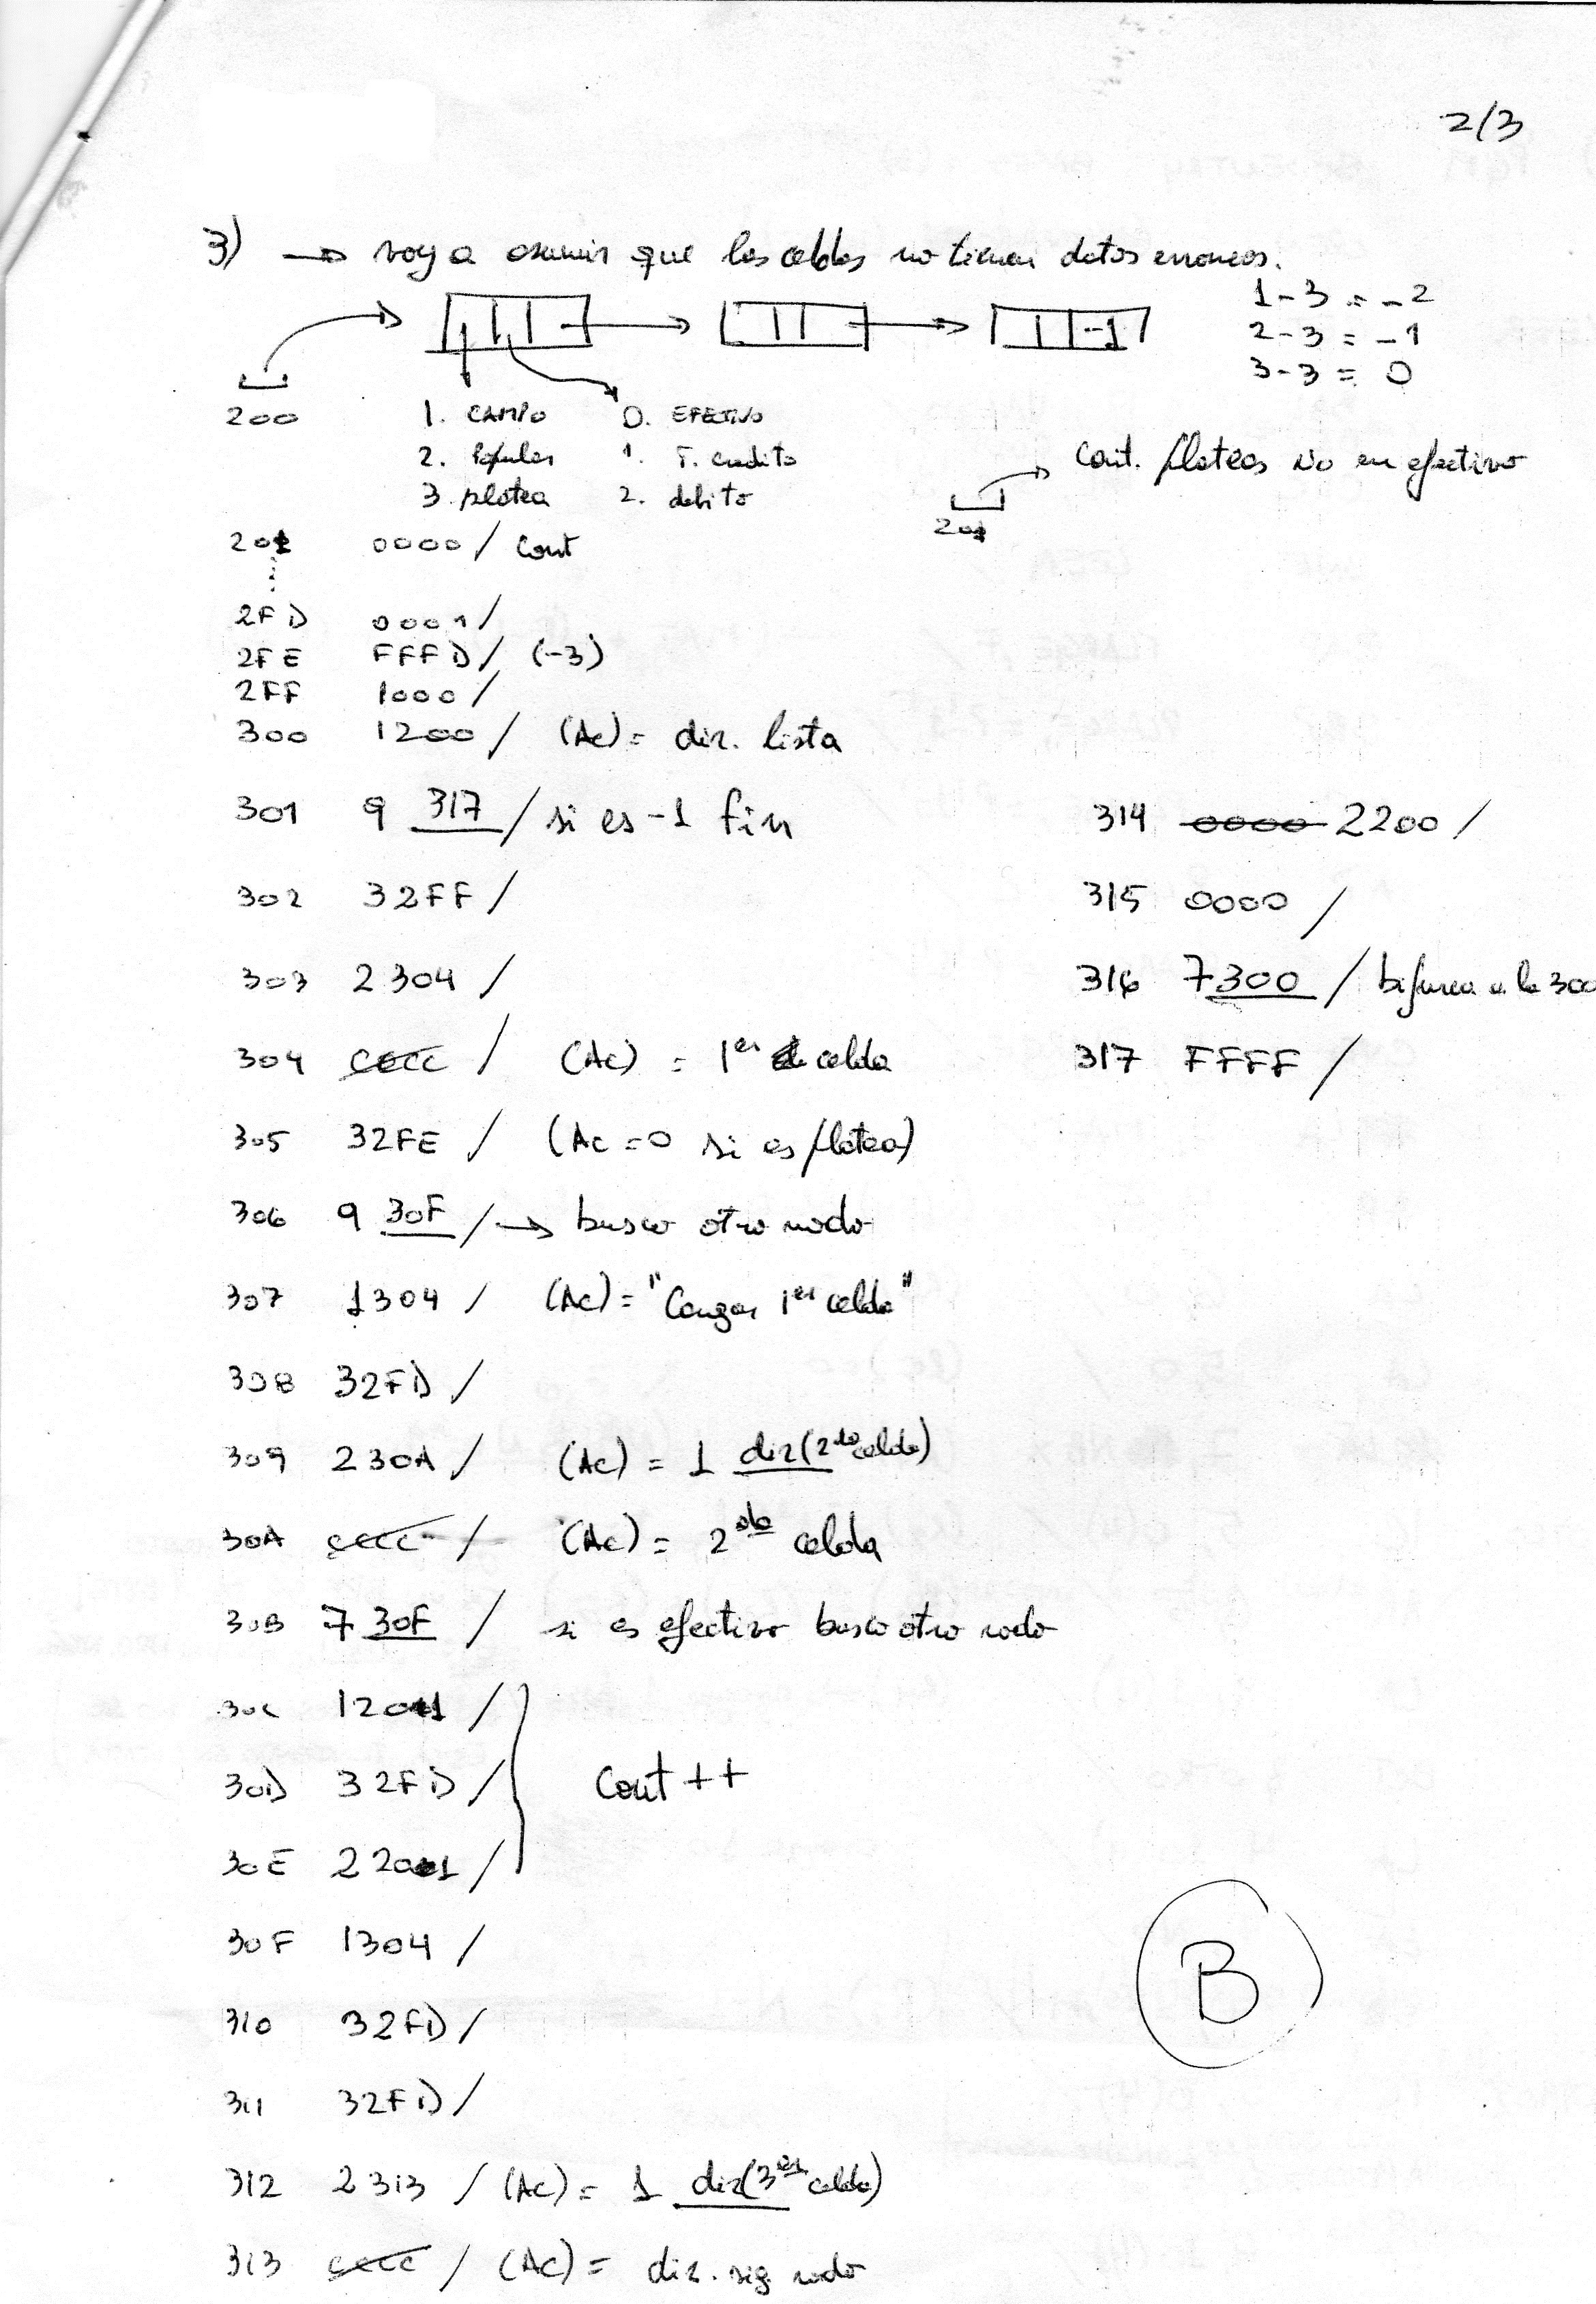 2/3
3) → voy a asumir que las celdas no tienen datos erroneos.
1-3 = -2
2-3 = -1
3-3 = 0
-1
200
1. CAMPO 0. EFECTIVO
2. Popular 1. T. credito
3. platea 2. debito
Cont. plateas NO en efectivo
201
201 0000 / Cont
2FD 0001 /
2FE FFFD / (-3)
2FF 1000 /
300 1200 / (Ac) = dir. lista
301 9 317 / si es -1 fin
302 32FF /
303 2304 /
304 / (Ac) = 1er celda
305 32FE / (Ac = 0 si es platea)
306 9 30F / → busco otro nodo
307 1304 / (Ac) = "Cargar 1er celda"
308 32FD /
309 230A / (Ac) = 1 dir(2da celda)
30A / (Ac) = 2da celda
30B 7 30F / si es efectivo busco otro nodo
30C 1201 /
30D 32FD / Cont ++
30E 2201 /
30F 1304 /
310 32FD /
311 32FD /
312 2313 / (Ac) = 1 dir(3er celda)
313 / (Ac) = dir. sig nodo
314 0000 2200 /
315 0000 /
316 7300 / bifurca a la 300
317 FFFF /
B